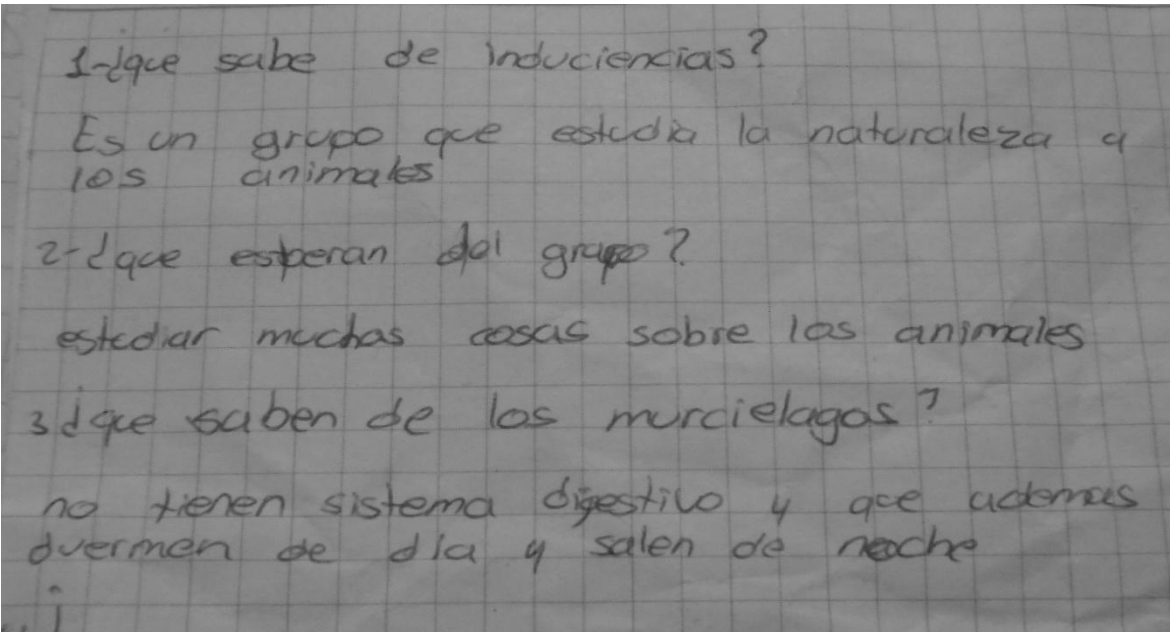 1-¿que sabe de induciencias?
Es un grupo que estudia la naturaleza y
los animales
2-¿que esperan del grupo?
estudiar muchas cosas sobre los animales
3¿que saben de los murcielagos?
no tienen sistema digestivo y que ademas
duermen de dia y salen de noche